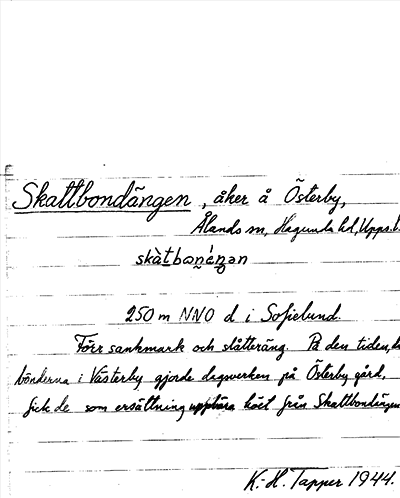 Skattbondängen, åker å Österby,
Ålands sn, Hagunda hd, Upps. l.
250 m NNO d i Sofielund.
Förr sankmark och slåtteräng. På den tiden, då
bönderna i Västerby gjorde dagsverken på Österby gård,
fick de som ersättning höet från Skattbondängen
K.-H. Tapper 1944.